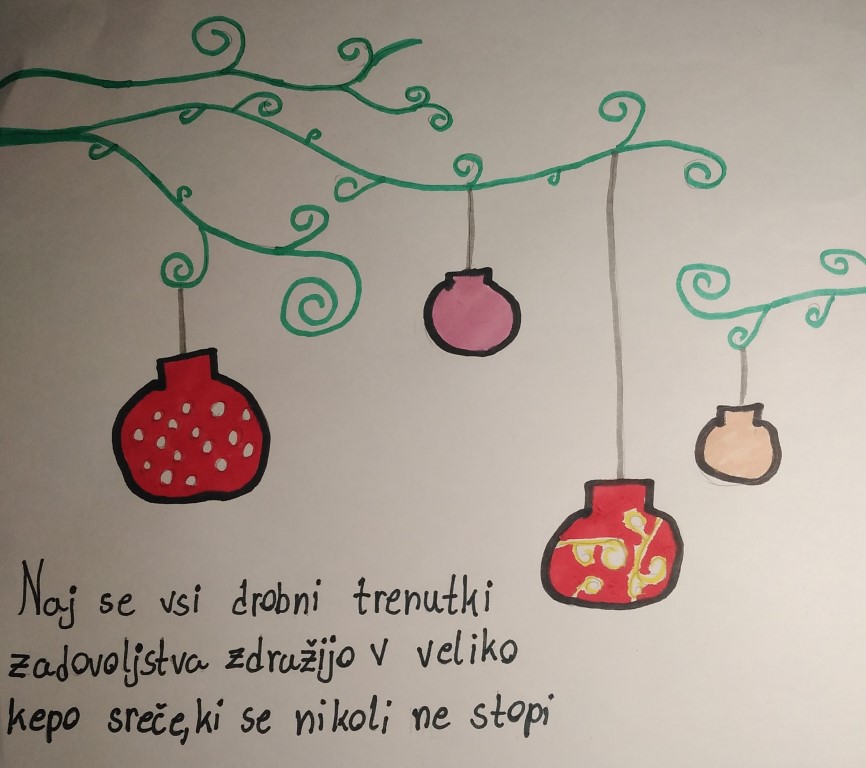 Naj se vsi drobni trenutki
zadovoljstva združijo v veliko
kepo sreče, ki se nikoli ne stopi